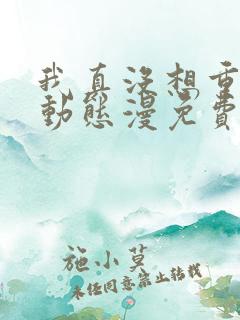 我真没想重
動態漫免費
施小莫
未经同意禁止转载